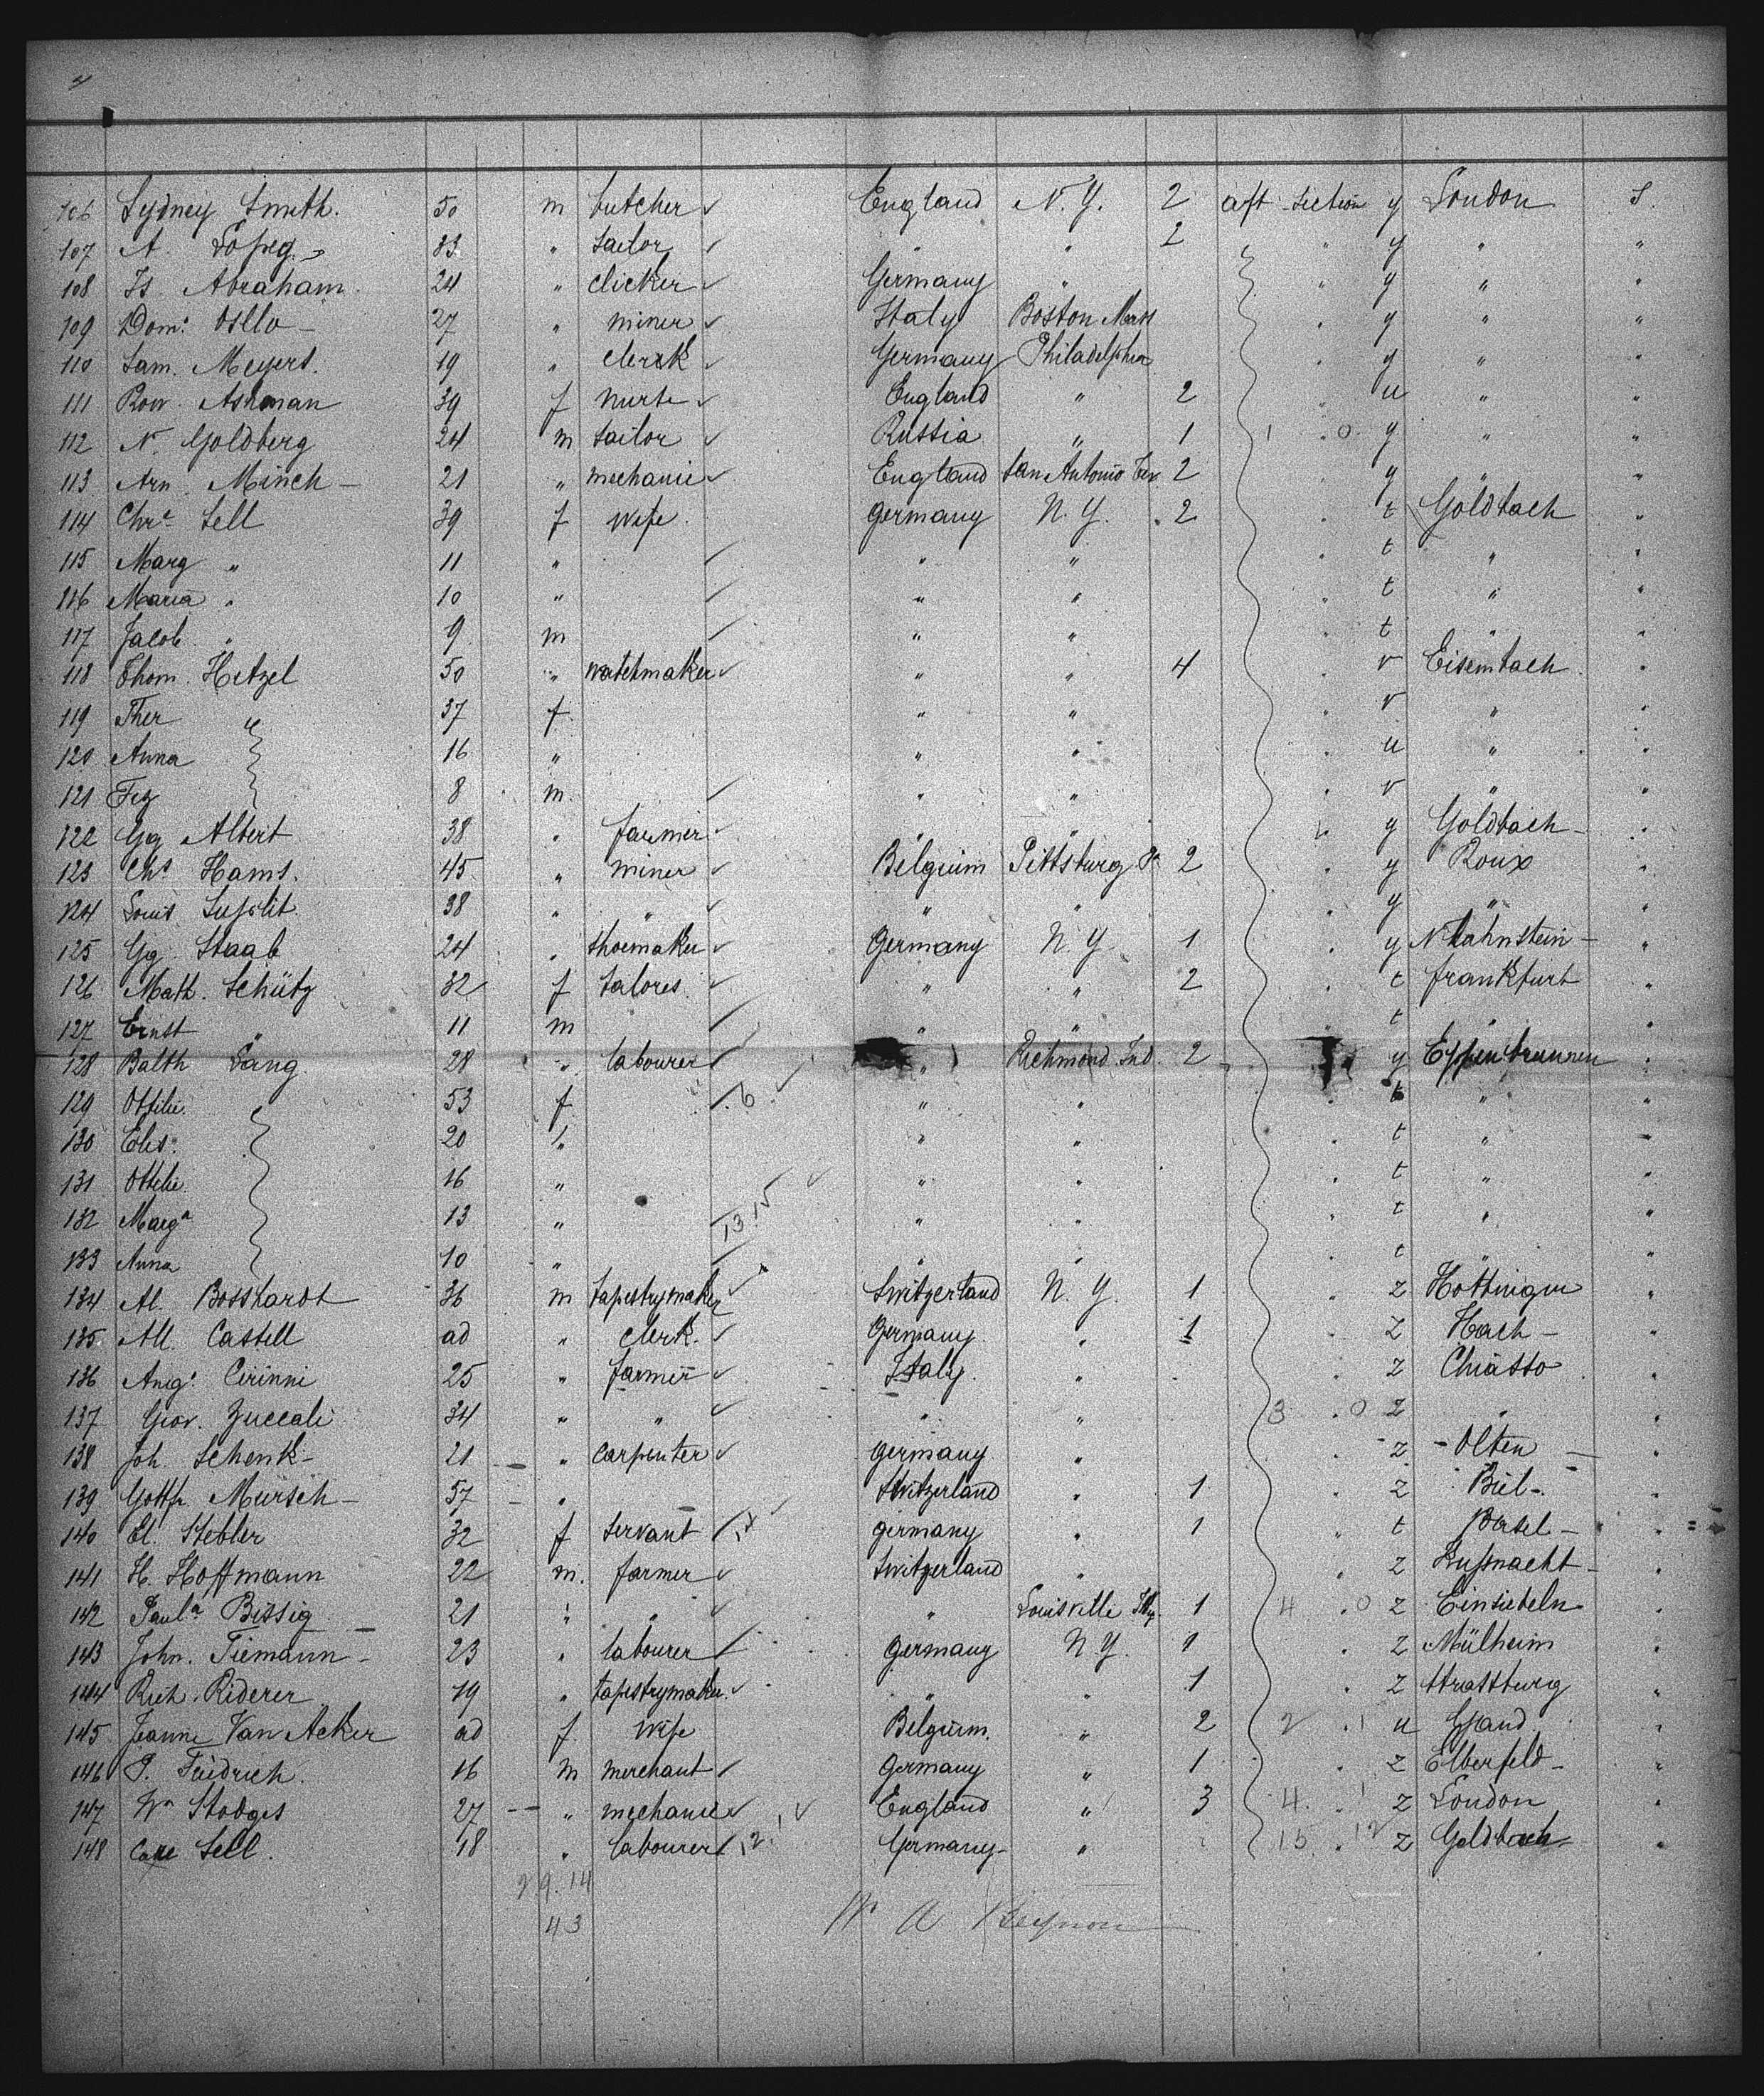 106 Sydney Smith. 50 m butcher ✓ England N. Y. 2 aft section y London S.
107 A. 33 " tailor ✓ " " 2 " y " "
108 Is. Abraham 24 " clicker ✓ Germany " " y " "
109 Domc Osllo 27 " miner ✓ Italy Boston Mass " y " "
110 Sam. Meyers. 19 " clerk ✓ Germany Philadelphia " y " "
111 Row. Ashman 39 f nurse ✓ England " 2 " u " "
112 N. Goldberg 24 m tailor ✓ Russia " 1 1 . 0 y " "
113 Arn. Minch - 21 " mechanic ✓ England San Antonio Tex 2 " y " "
114 Chra Sell 39 f wife. Germany N. Y. 2 " t Goldbach "
115 Marg " 11 " ✓ " " " t " "
116 Maria " 10 " ✓ " " " t " "
117 Jacob " 9 m ✓ " " " t " "
118 Thom. Hetzel 50 " watchmaker ✓ " " 4 " v Eisembach "
119 Ther 37 f " " " v " "
120 Anna 16 " " " " u " "
121 8 m. ✓ " " " v " "
122 Gg Albert 38 " farmer ✓ " " " y Goldbach - "
123 Chs Hams. 45 " miner ✓ Belgium Pittsburg Pa 2 " y Roux "
124 Louis 38 " " ✓ " " " y " "
125 Gg. Staab 24 " shoemaker ✓ Germany N. Y. 1 " y N Lahnstein - "
126 Math. Schütz 32 f talores. ✓ " " 2 " t Frankfurt "
127 Ernst " 11 m ✓ " " " t " "
128 Balth Lang 28 " labourer ✓ " Richmond. Ind. 2 " y Eppenbrunnen "
129 Ottilie 53 f 6 ✓ " " " t " "
130 Elis. 20 " " " " t " "
131 Ottilie 16 " ✓ " " " t " "
132 Marga 13 " 13. 15 " " " t " "
133 Anna 10 " ✓ " " " t " "
134 Al. Bosshardt 36 m tapestrymaker ✓ Switzerland N. Y. 1 " z Hottingen "
135. All. Castell ad " clerk. ✓ Germany " 1 " z -
136 Ang. Cirinni 25 " farmer ✓ Italy " " z Chiasso "
137 Giov. Zuccali 34 " " ✓ " " 3 . 0 z " "
138 Joh. Schenk - 21 " carpenter ✓ Germany " " z - Olten - "
139 Gottfr. Mürsch - 57 " Switzerland " 1 " z Biel -. "
140 El. Stebler 32 f servant ✓ Germany " 1 " t Basel - "
141 H. Hoffmann 22 m. farmer ✓ Switzerland " " z Kussnacht - "
142 Paula Bissig 21 " " ✓ " Louisville Ky. 1 4 . 0 z Einsiedeln "
143 John. Tiemann - 23 " labourer ✓ Germany N. Y. 1 " z Mülheim "
144 Rich. Riderer 19 " tapestrymaker. ✓ " " 1 " z Strassburg "
145. Jeanne Van Acker ad f. wife Belgium. " 2 2 . 1 u Gand "
146 P. Friedrich. 16 m merchant ✓ Germany " 1 " z Elberfeld - "
147 Wm Stodges 27 " mechanic ✓ England " 3 4. . 1 z London "
148 Sell. 18 " labourer 12 Germany " 15 . 12 z Goldbach "
29. 14
43
W A